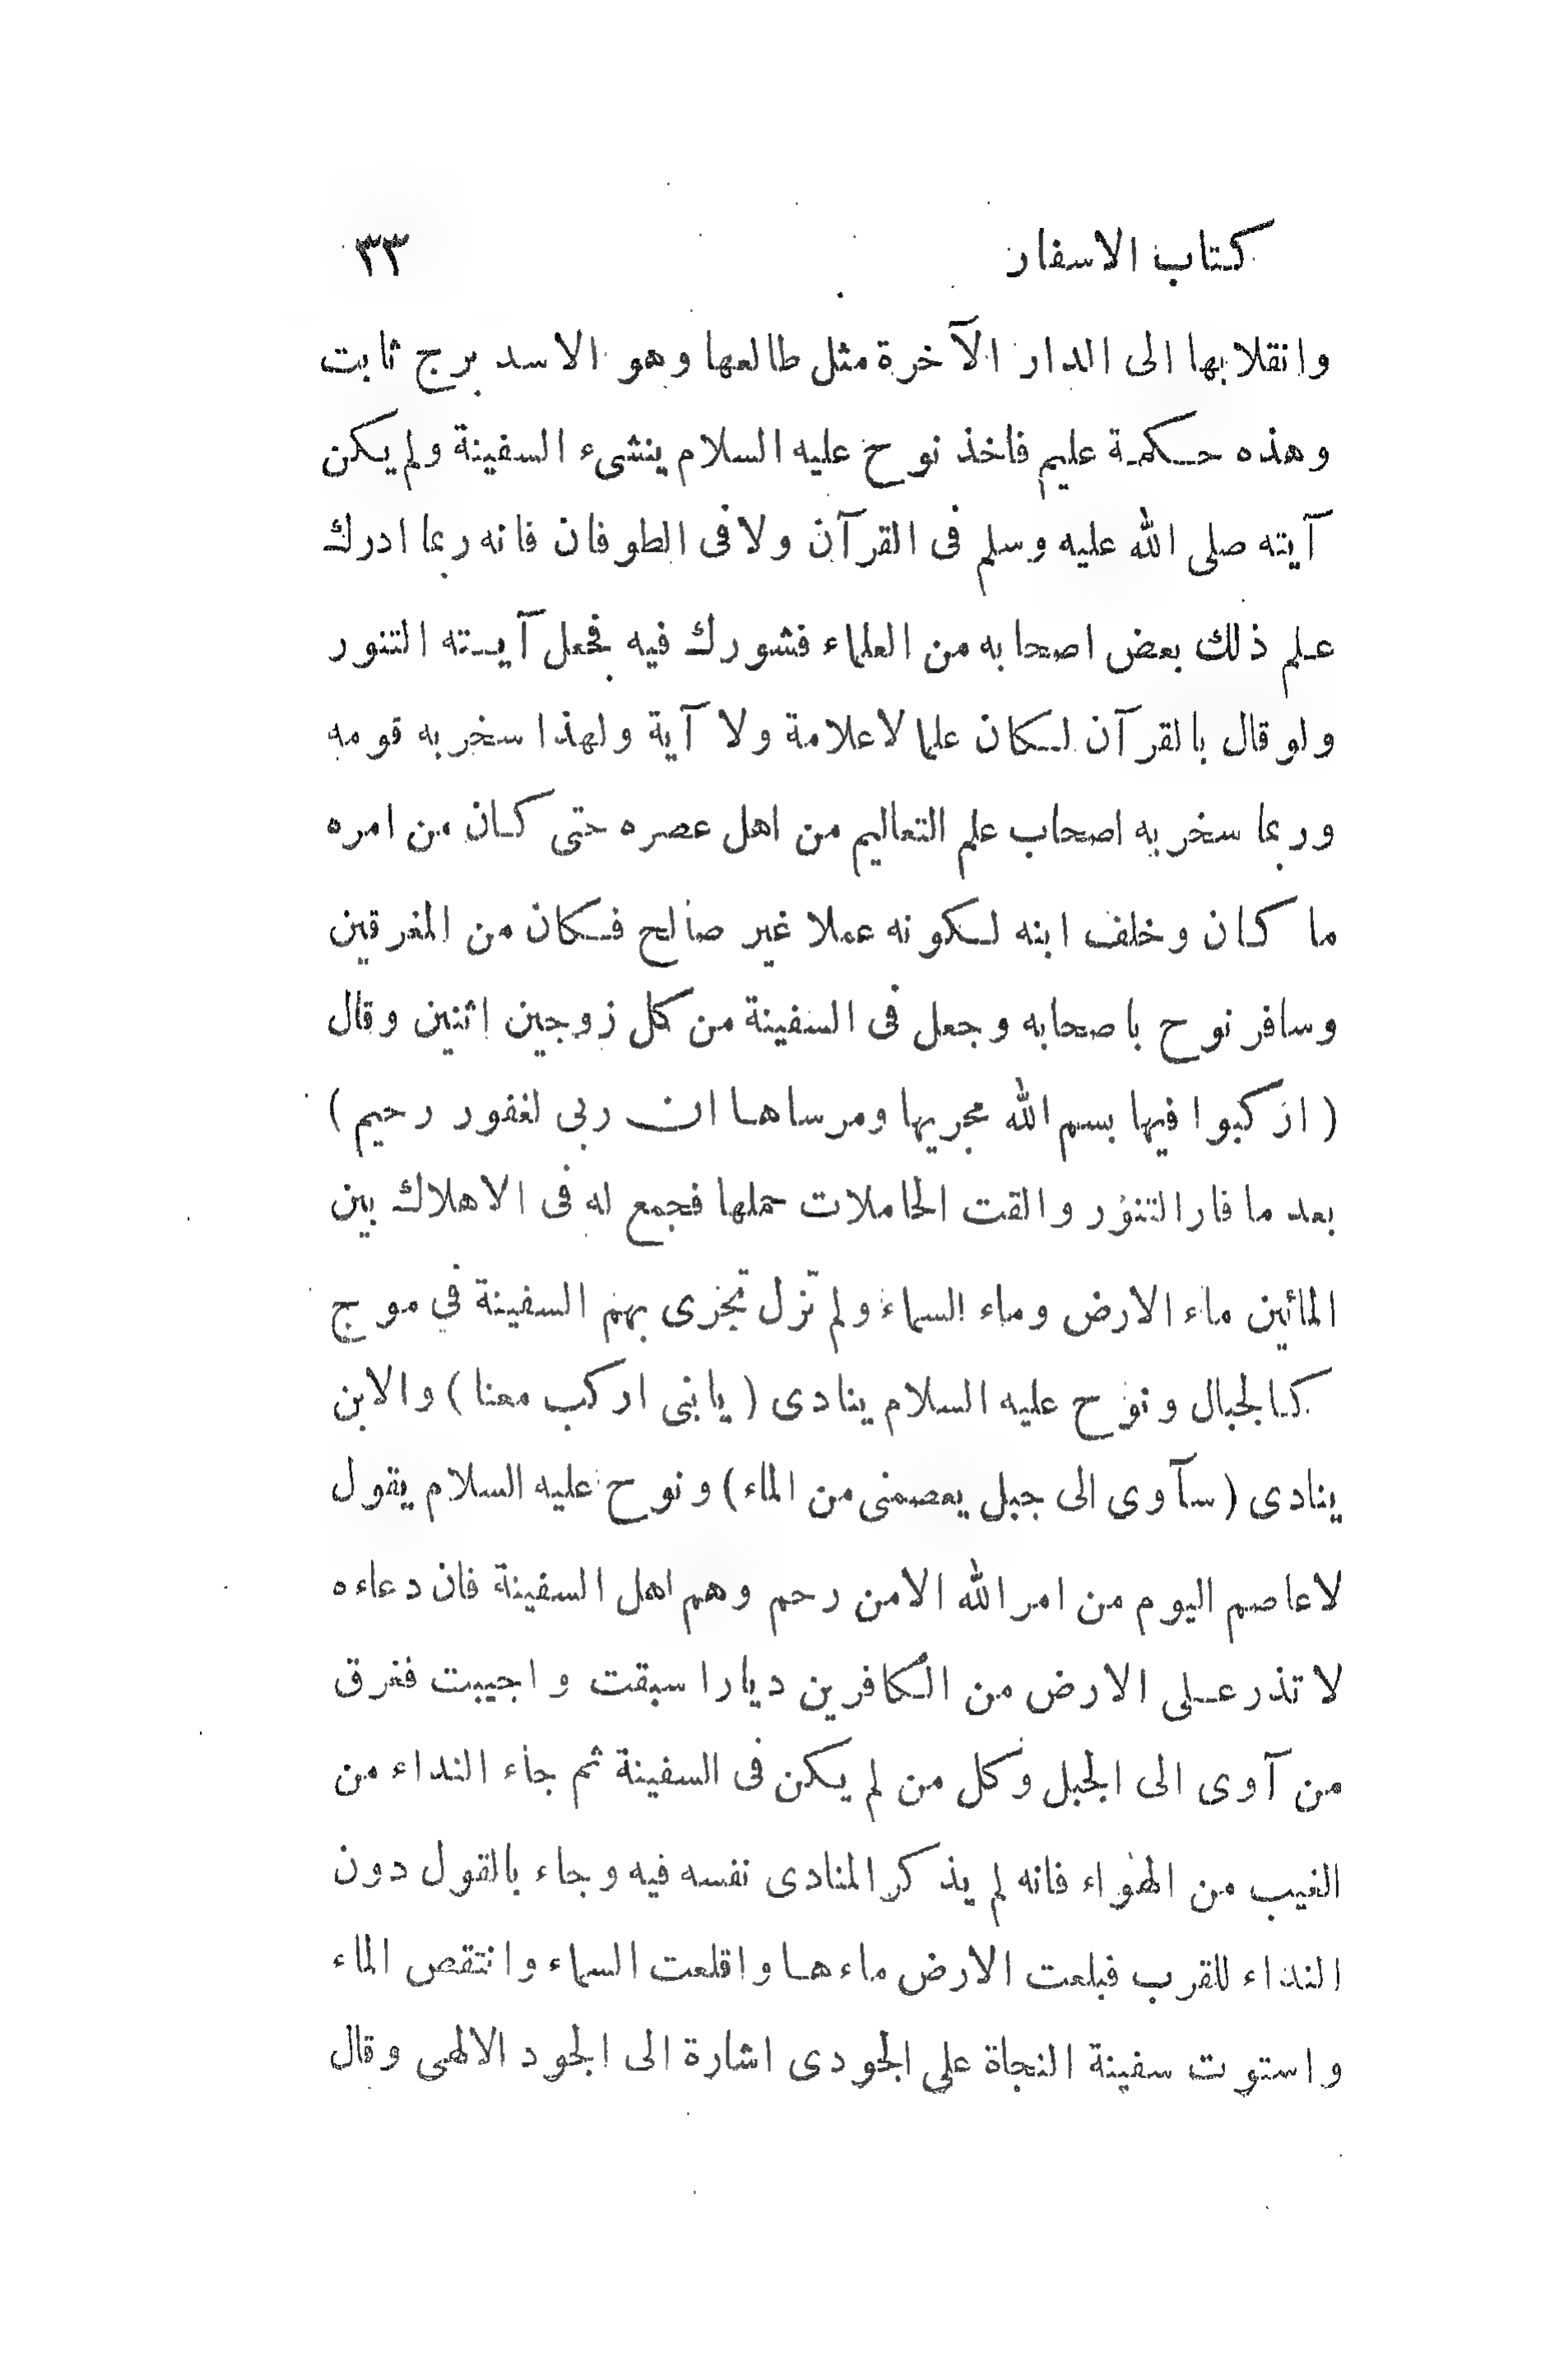 كتاب الاسفار ٣٣
وانقلابها الى الدار الآخرة مثل طالعها وهو الاسد برج ثابت
وهذه حكمة عليم فاخذ نوح عليه السلام ينشىء السفينة ولم يكن
آيته صلى الله عليه وسلم فى القرآن ولا فى الطوفان فانه ربما ادرك
علم ذلك بعض اصحابه من العلماء فشورك فيه فجعل آيته التنور
ولو قال بالقرآن لكان علما لا علامة ولا آية ولهذا سخر به قومه
وربما سخر به اصحاب علم التعاليم من اهل عصره حتى كان من امره
ما كان وخلف ابنه لكونه عملا غير صالح فكان من المغرقين
وسافر نوح باصحابه وجعل فى السفينة من كل زوجين اثنين وقال
( اركبوا فيها بسم الله مجريها ومرساها ان ربى لغفور رحيم )
بعد ما فار التنور والقت الحاملات حملها فجمع له فى الاهلاك بين
المائين ماء الارض وماء السماء ولم تزل تجرى بهم السفينة في موج
كالجبال ونوح عليه السلام ينادى ( يابنى اركب معنا ) والابن
ينادى ( سآوى الى جبل يعصمنى من الماء ) ونوح عليه السلام يقول
لاعاصم اليوم من امر الله الا من رحم وهم اهل السفينة فان دعاءه
لا تذر على الارض من الكافرين ديارا سبقت واجيبت فغرق
من آوى الى الجبل وكل من لم يكن فى السفينة ثم جاء النداء من
الغيب من الهواء فانه لم يذكر المنادى نفسه فيه وجاء بالقول دون
النداء للقرب فبلعت الارض ماءها واقلعت السماء وانتقص الماء
واستوت سفينة النجاة على الجودى اشارة الى الجود الالهى وقال